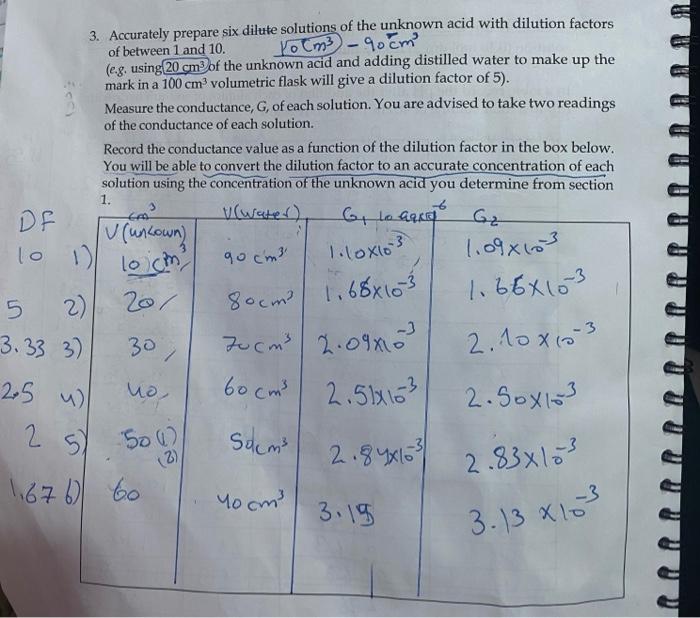 3. Accurately prepare six dilute solutions of the unknown acid with dilution factors
of between 1 and 10. 10 cm³ - 90 cm³
(e.g. using 20 cm³ of the unknown acid and adding distilled water to make up the
mark in a 100 cm³ volumetric flask will give a dilution factor of 5).
Measure the conductance, G, of each solution. You are advised to take two readings
of the conductance of each solution.
Record the conductance value as a function of the dilution factor in the box below.
You will be able to convert the dilution factor to an accurate concentration of each
solution using the concentration of the unknown acid you determine from section
1.
DF cm³ V(uncown) V(water) G₁ G₂
10 1) 10 cm³ 90 cm³ 1.10x10⁻³ 1.09x10⁻³
5 2) 20 80cm³ 1.68x10⁻³ 1.66x10⁻³
3.33 3) 30 70cm³ 2.09x10⁻³ 2.10x10⁻³
2.5 4) 40 60cm³ 2.51x10⁻³ 2.50x10⁻³
2 5) 50 (1) (2) 50cm³ 2.84x10⁻³ 2.83x10⁻³
1.67 6) 60 40cm³ 3.15 3.13 x10⁻³